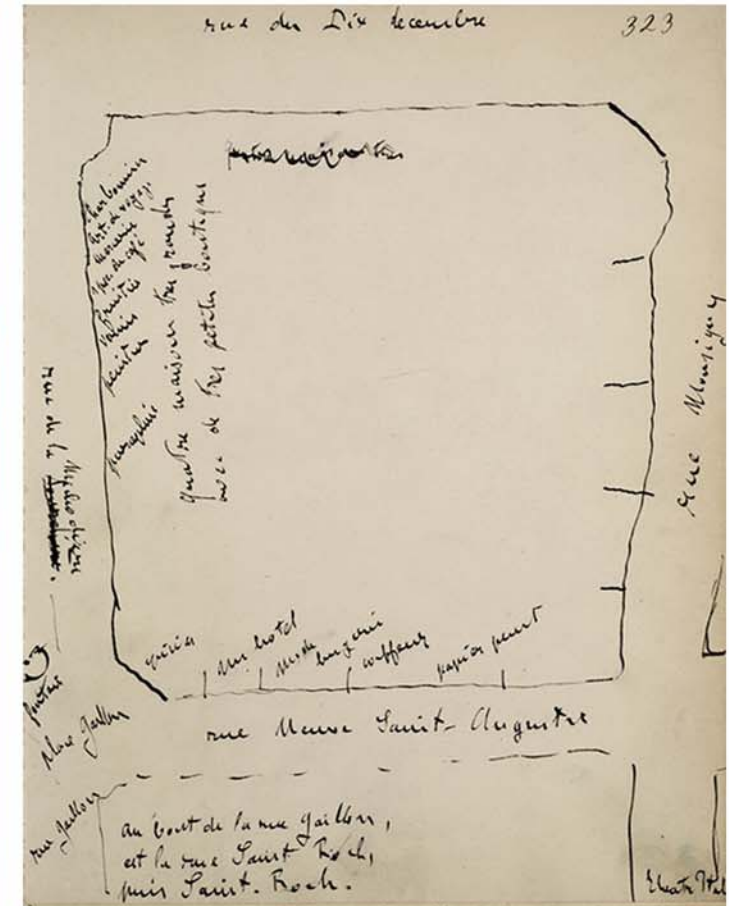 rue du Dix decembre
323
charbonnier
art. de voyage
mercerie
fruitier
peintre
parapluies
quatre maisons très grandes
avec de très petites boutiques
rue de la Michodière
rue Monsigny
épicier
un hotel
mode
lingerie
coiffeur
papier peint
rue Neuve Saint-Augustin
fontaine
place Gaillon
rue Gaillon
au bout de la rue Gaillon,
est la rue Saint Roch,
puis Saint-Roch.